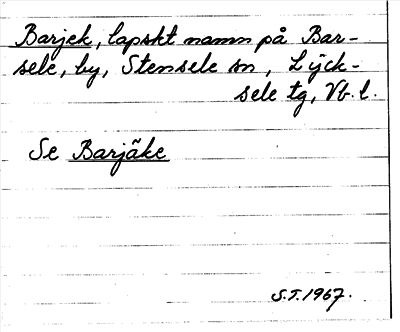 Barjek, lapskt namn på Bar-
sele, by, Stensele sn, Lyck-
sele tg, Vb. l.
Se Barjäke
S.T. 1967.